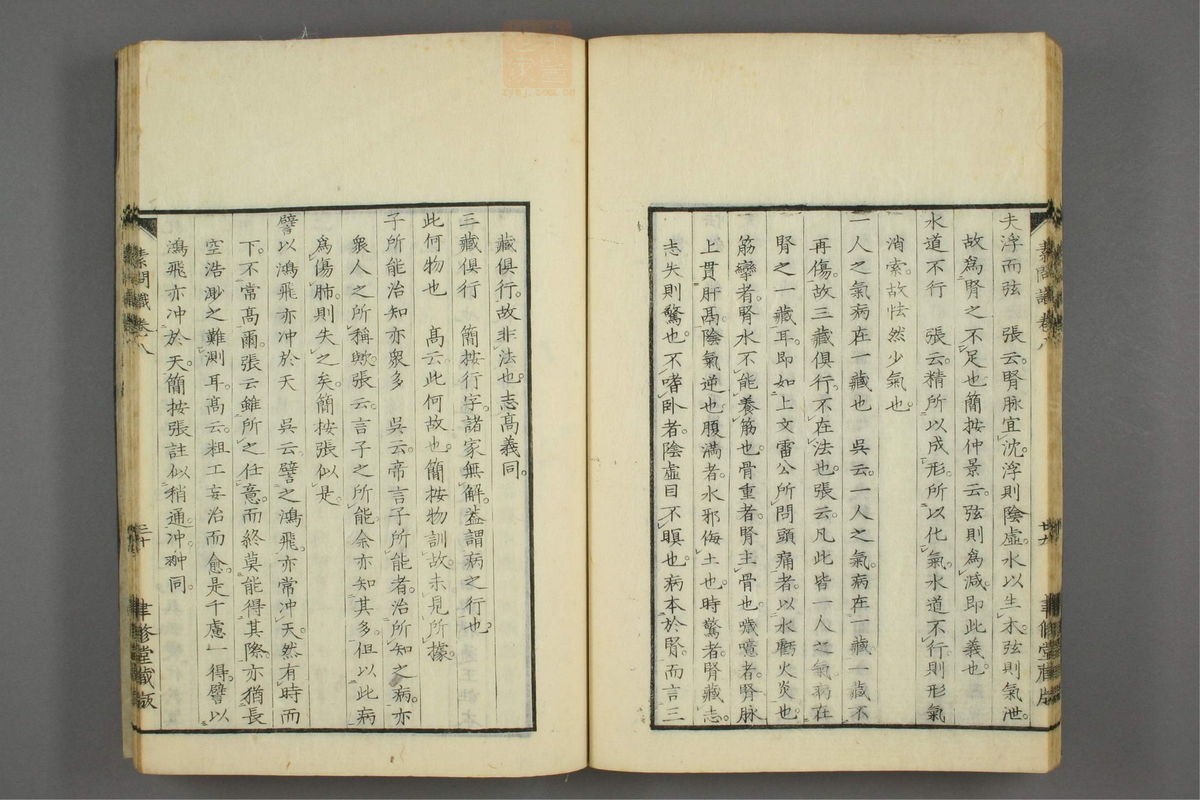 夫浮而弦　張云腎脉宜沈浮則陰虛水以生木弦則氣泄
故爲腎之不足也簡按仲景云弦則爲減即此義也
水道不行　張云精所以成形所以化氣水道不行則形氣
消索故怯然少氣也
一人之氣病在一藏也　吳云一人之氣病在一藏一藏不
再傷故三藏俱行不在法也張云凡此皆一人之氣病在
腎之一藏耳即如上文雷公所問頭痛者以水虧火炎也
筋攣者腎水不能養筋也骨重者腎主骨也噦噫者腎脉
上貫肝鬲陰氣逆也腹滿者水邪侮土也時驚者腎藏志
志失則驚也不嗜卧者陰虛目不瞑也病本於腎而言三
素問識 卷八
廿九
聿修堂藏版
藏俱行故非法也志高義同
三藏俱行　簡按行字諸家無解蓋謂病之行也
此何物也　高云此何故也簡按物訓故未見所據
子所能治知亦衆多　吳云帝言子所能者治所知之病亦
衆人之所稱歟張云言子之所能余亦知其多但以此病
爲傷肺則失之矣簡按張似是
譬以鴻飛亦冲於天　吳云譬之鴻飛亦常冲天然有時而
下不常高爾張云雖所之任意而終莫能得其際亦猶長
空浩渺之難測耳高云粗工妄治而愈是千慮一得譬以
鴻飛亦冲於天簡按張註似稍通冲翀同
素問識 卷八
三十
聿修堂藏版